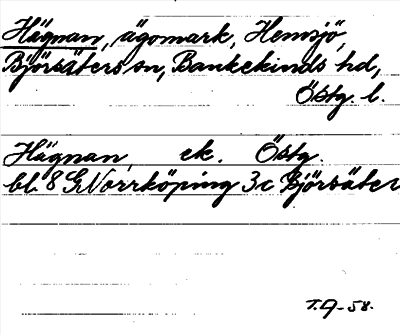 Hägnan, ägomark, Hemsjö,
Björsäters sn, Bankekinds hd,
Östg. l.
Hägnan, ek. Östg.
bl. 8 G Norrköping 3c Björsäter
T.A-58.